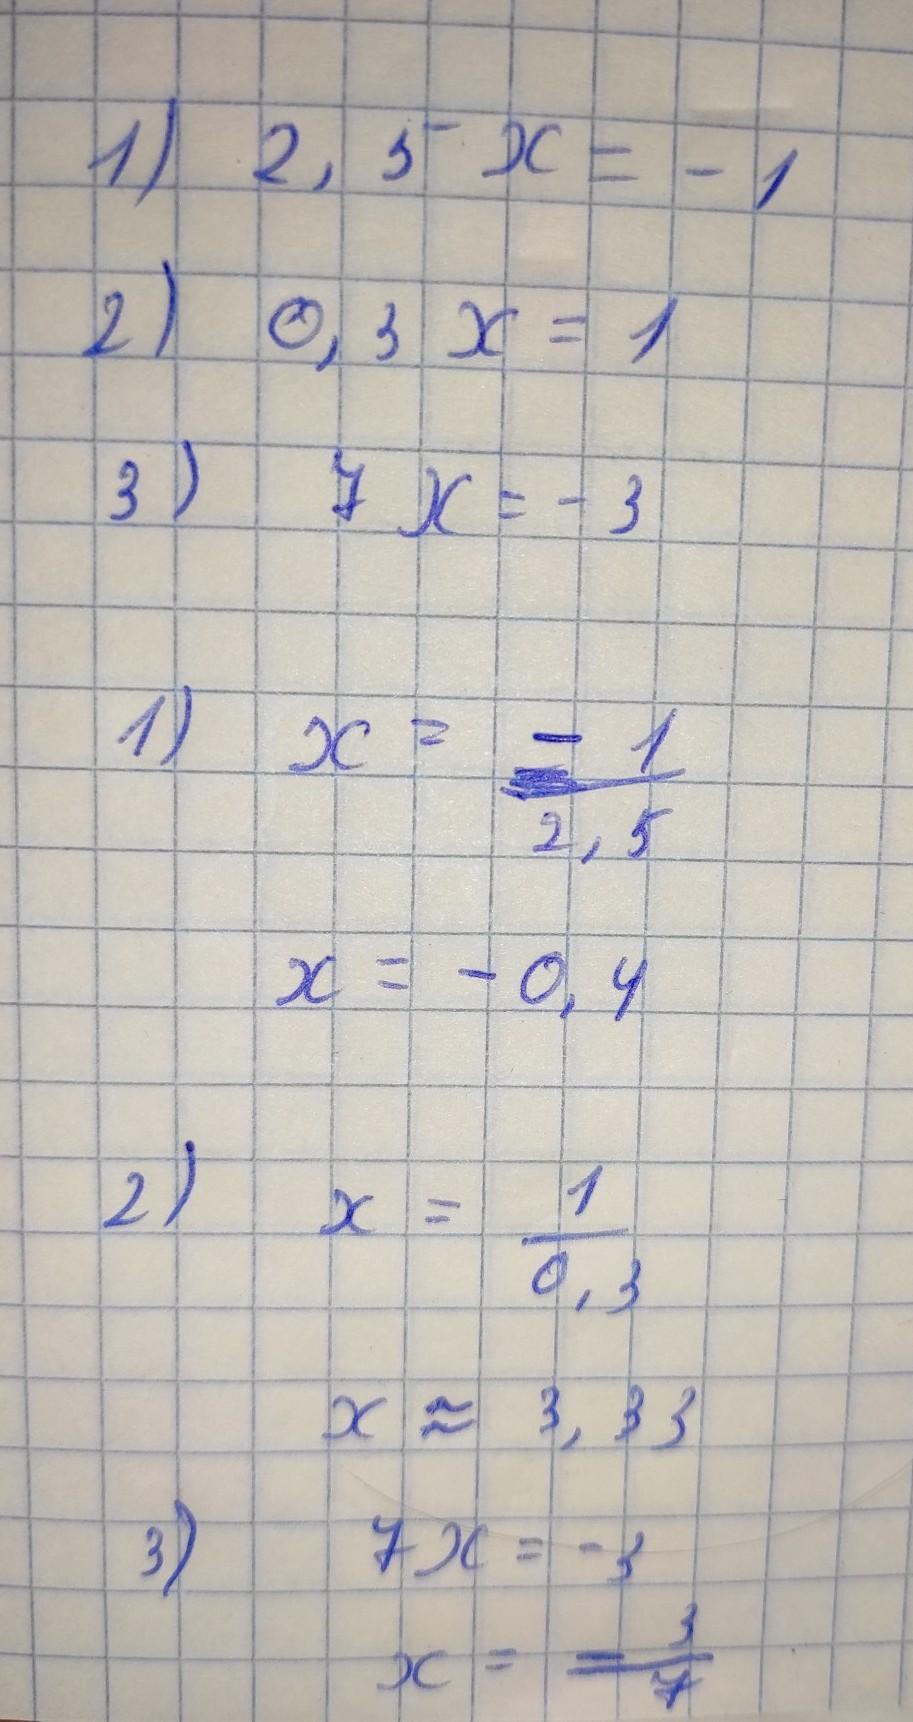 1) 2,5 x = - 1
2) 0,3 x = 1
3) 7 x = - 3
1) x = - 1
2,5
x = - 0,4
2) x = 1
0,3
x ≈ 3,33
3) 7x = - 3
x = - 3
7